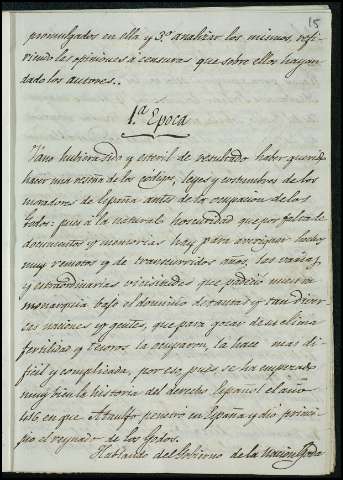 15
promulgados en ella y 3º. analizar los mismos, refi-
riendo las opiniones o censuras que sobre ellos hayan
dado los autores..
1.ª Epoca
Vano hubiera sido y esteril de resultado haber querido
hacer una reseña de los codigos, leyes y costumbres de los
moradores de España antes de la ocupacion de los
Godos: pues á la natural obscuridad que por falta de
documentos y memorias hay para averiguar hechos
muy remotos y de transcurridos años, las varias,
y extraordinarias vicisitudes que padeció nuestra
monarquia bajo el dominio de tantas y tan diver-
sas naciones y gentes, que para gozar de su clima
fertilidad y tesoros la ocuparon, la hace mas di-
ficil y complicada, por eso, pues, se ha empezado
muy bien la historia del derecho Español el año
416 en que Ataulfo penetró en España y dio princi-
pio el reynado de los Godos.
Hablando del Gobierno de la nacion Goda